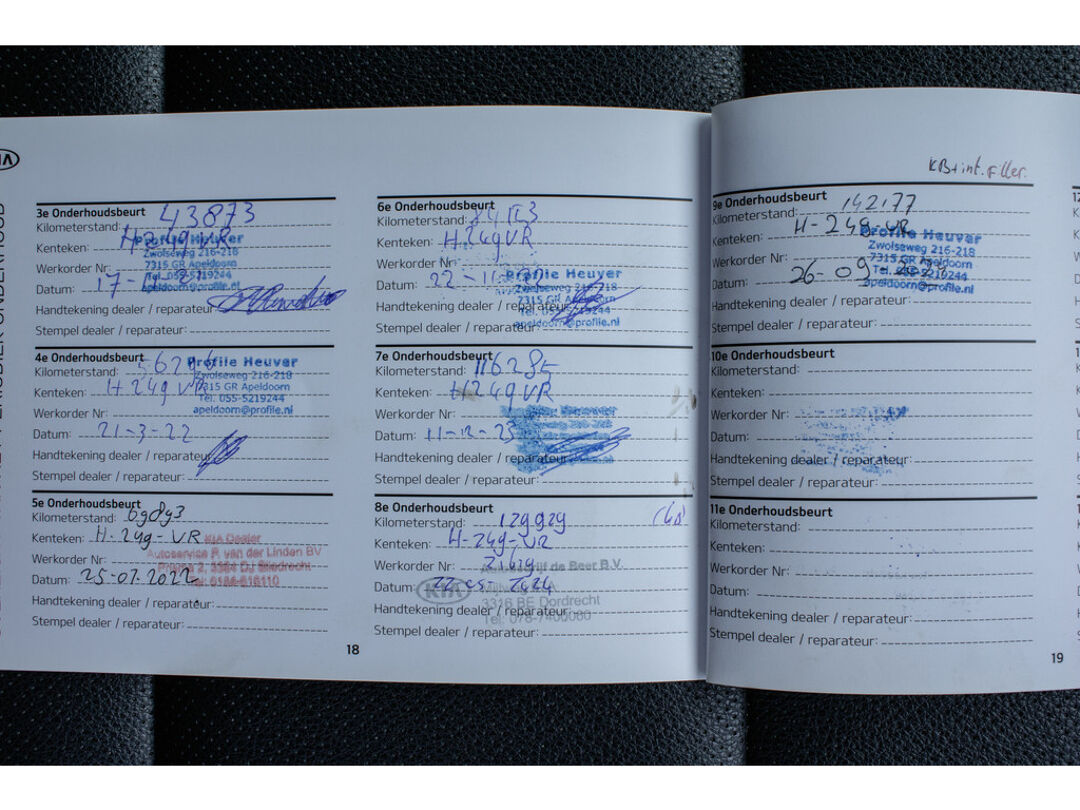 3e Onderhoudsbeurt
Kilometerstand: 43873
Kenteken: H249VR
Werkorder Nr:
Datum: 17-
Handtekening dealer / reparateur:
Stempel dealer / reparateur:
Profile Heuver
Zwolseweg 216-218
7315 GR Apeldoorn
Tel. 055-5219244
apeldoorn@profile.nl
4e Onderhoudsbeurt
Kilometerstand:
Kenteken: H249VR
Werkorder Nr:
Datum: 21-3-22
Handtekening dealer / reparateur:
Stempel dealer / reparateur:
Profile Heuver
Zwolseweg 216-218
7315 GR Apeldoorn
Tel. 055-5219244
apeldoorn@profile.nl
5e Onderhoudsbeurt
Kilometerstand: 69893
Kenteken: H-249-VR
Werkorder Nr:
Datum: 25-07-2022
Handtekening dealer / reparateur:
Stempel dealer / reparateur:
KIA Dealer
Autoservice P. van der Linden BV
18
6e Onderhoudsbeurt
Kilometerstand:
Kenteken: H249VR
Werkorder Nr:
Datum: 22-11-
Handtekening dealer / reparateur:
Stempel dealer / reparateur:
Profile Heuver
Zwolseweg 216-218
7315 GR Apeldoorn
Tel. 055-5219244
apeldoorn@profile.nl
7e Onderhoudsbeurt
Kilometerstand:
Kenteken: H249VR
Werkorder Nr:
Datum: 11-12-23
Handtekening dealer / reparateur:
Stempel dealer / reparateur:
8e Onderhoudsbeurt
Kilometerstand: 129929
Kenteken: H-249-VR
Werkorder Nr:
Datum: 22-05-2024
Handtekening dealer / reparateur:
Stempel dealer / reparateur:
KIA
de Beer B.V.
3316 BE Dordrecht
Tel: 078-7400080
KB+int.Filter.
9e Onderhoudsbeurt
Kilometerstand: 142177
Kenteken: H-249-VR
Werkorder Nr:
Datum: 26-09
Handtekening dealer / reparateur:
Stempel dealer / reparateur:
Profile Heuver
Zwolseweg 216-218
7315 GR Apeldoorn
Tel. 055-5219244
apeldoorn@profile.nl
10e Onderhoudsbeurt
Kilometerstand:
Kenteken:
Werkorder Nr:
Datum:
Handtekening dealer / reparateur:
Stempel dealer / reparateur:
11e Onderhoudsbeurt
Kilometerstand:
Kenteken:
Werkorder Nr:
Datum:
Handtekening dealer / reparateur:
Stempel dealer / reparateur:
19